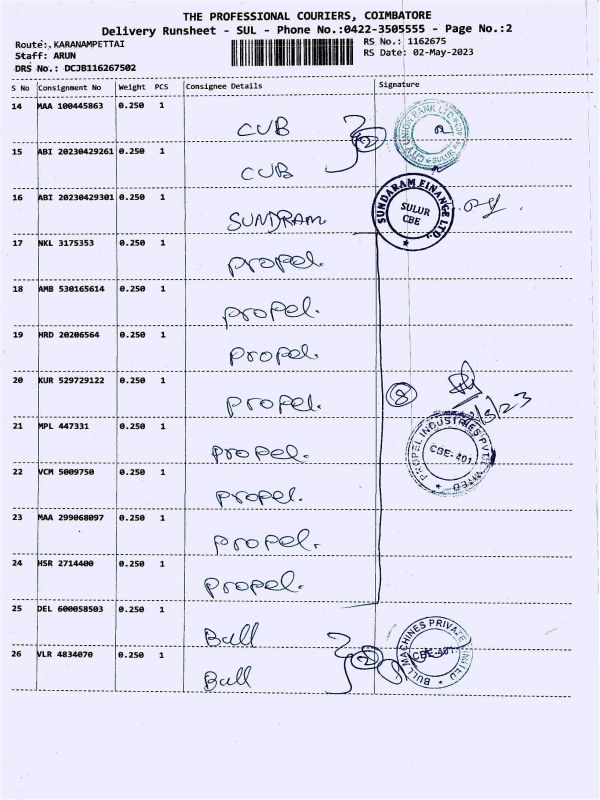 THE PROFESSIONAL COURIERS, COIMBATORE
Delivery Runsheet - SUL - Phone No.:0422-3505555 - Page No.:2
Route: KARANAMPETTAI
RS No.: 1162675
Staff: ARUN
RS Date: 02-May-2023
DRS No.: DCJB116267502
S No Consignment No Weight PCS Consignee Details Signature
14 MAA 100445863 0.250 1 CUB
2
CITY UNION BANK LTD SULUR
15 ABI 20230429261 0.250 1 CUB
16 ABI 20230429301 0.250 1 SUNDRAM
SUNDARAM FINANCE LTD.
SULUR
CBE
17 NKL 3175353 0.250 1 Propel.
18 AMB 530165614 0.250 1 Propel.
19 HRD 20206564 0.250 1 Propel.
20 KUR 529729122 0.250 1 Propel.
8
2/5/23
21 MPL 447331 0.250 1 Propel.
PROPEL INDUSTRIES PVT LIMITED
CBE-401.
22 VCM 5009750 0.250 1 Propel.
23 MAA 299068097 0.250 1 Propel.
24 HSR 2714400 0.250 1 Propel.
25 DEL 600058503 0.250 1 Bull
26 VLR 4834070 0.250 1 Bull
2
BULL MACHINES PRIVATE LIMITED
CBE-401